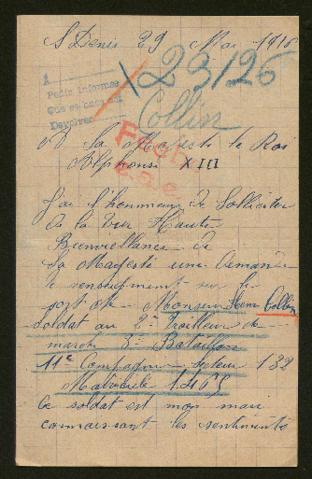 St Denis 29 Mai 1918
23126
Collin
A
Pedir informes
Devolver
A Sa Majesté le Roi
Alphonse XIII
J'ai l'honneur de Solliciter
de la très Haute
Bienveillance de
Sa Majesté une demande
de renseignement sur le
sort de Monsieur Collin
soldat au 2e Tirailleur de
marche 8e Bataillon
11e Compagnie secteur 132
Matricule
Ce soldat est mon mari
connaissant les sentiments